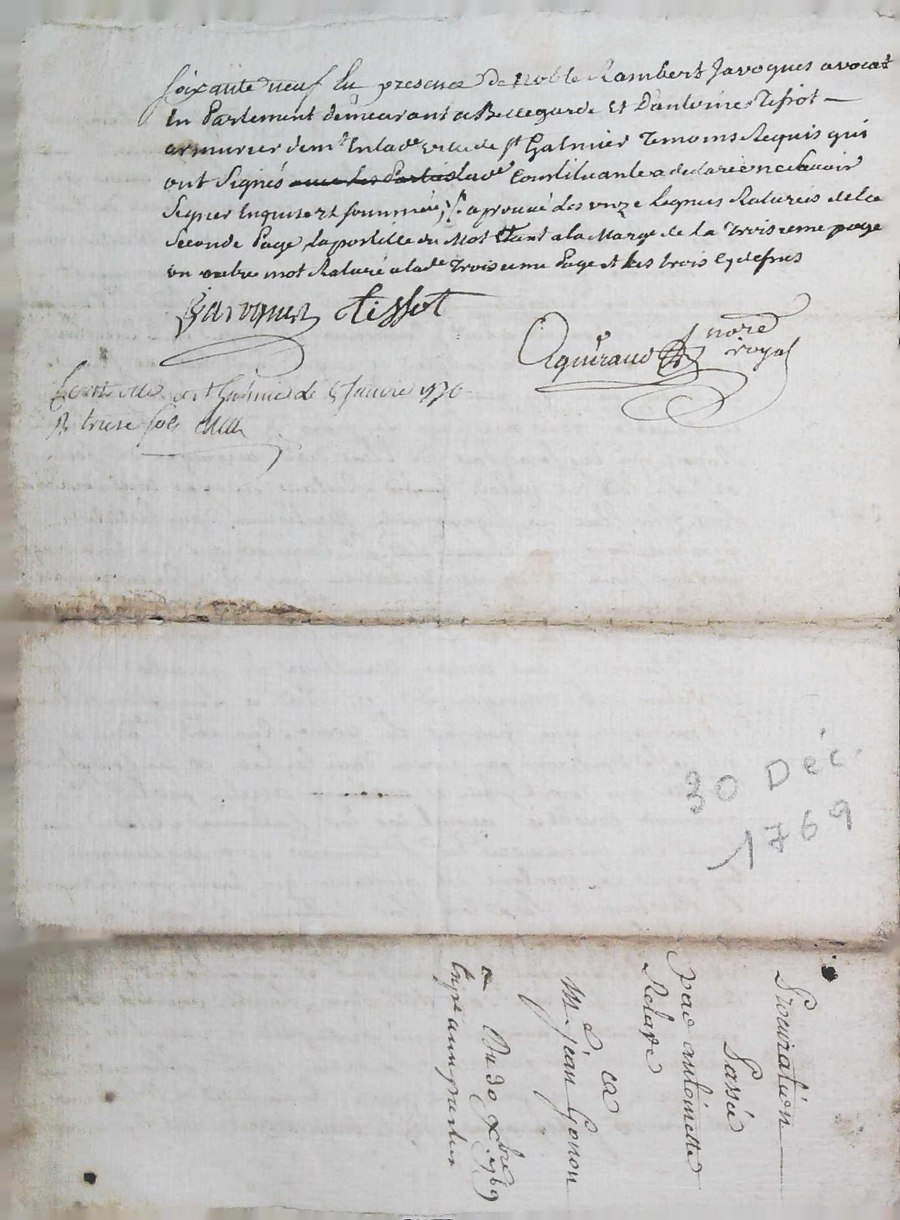 soixante neuf En presence de noble Rambert Javogues avocat
En Parlement demeurant a Bellegarde Et D'antoine Tissot
armurier demt Enlade ville de st Galmier Temoins Requis qui
ont Signés Constituante a declaré ne scavoir
Signer Enquise et sommée, aprouvé des unze Lignes Raturées de la
seconde Page La postille du Mot Etant a la Marge de la Troisieme page
un autre mot Raturé alade Troisieme Page et les trois cy dessus
Javogues Tissot
Aguiraud nore
royal
st Galmier le 5 Janvier 1770
R treize sols
30 Déc.
1769
Procuration
Passée
Par antoinette
Relave
a
M. Jean Gonon
Du 30 xbre 1769